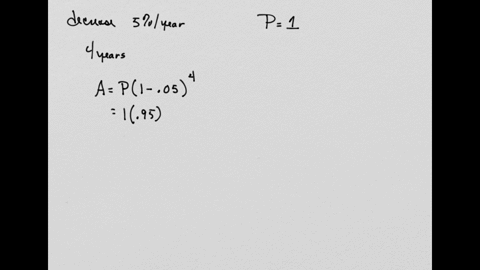 decrease 5%/year
P = 1
4 years
A = P(1 - .05)^4
= 1(.95)